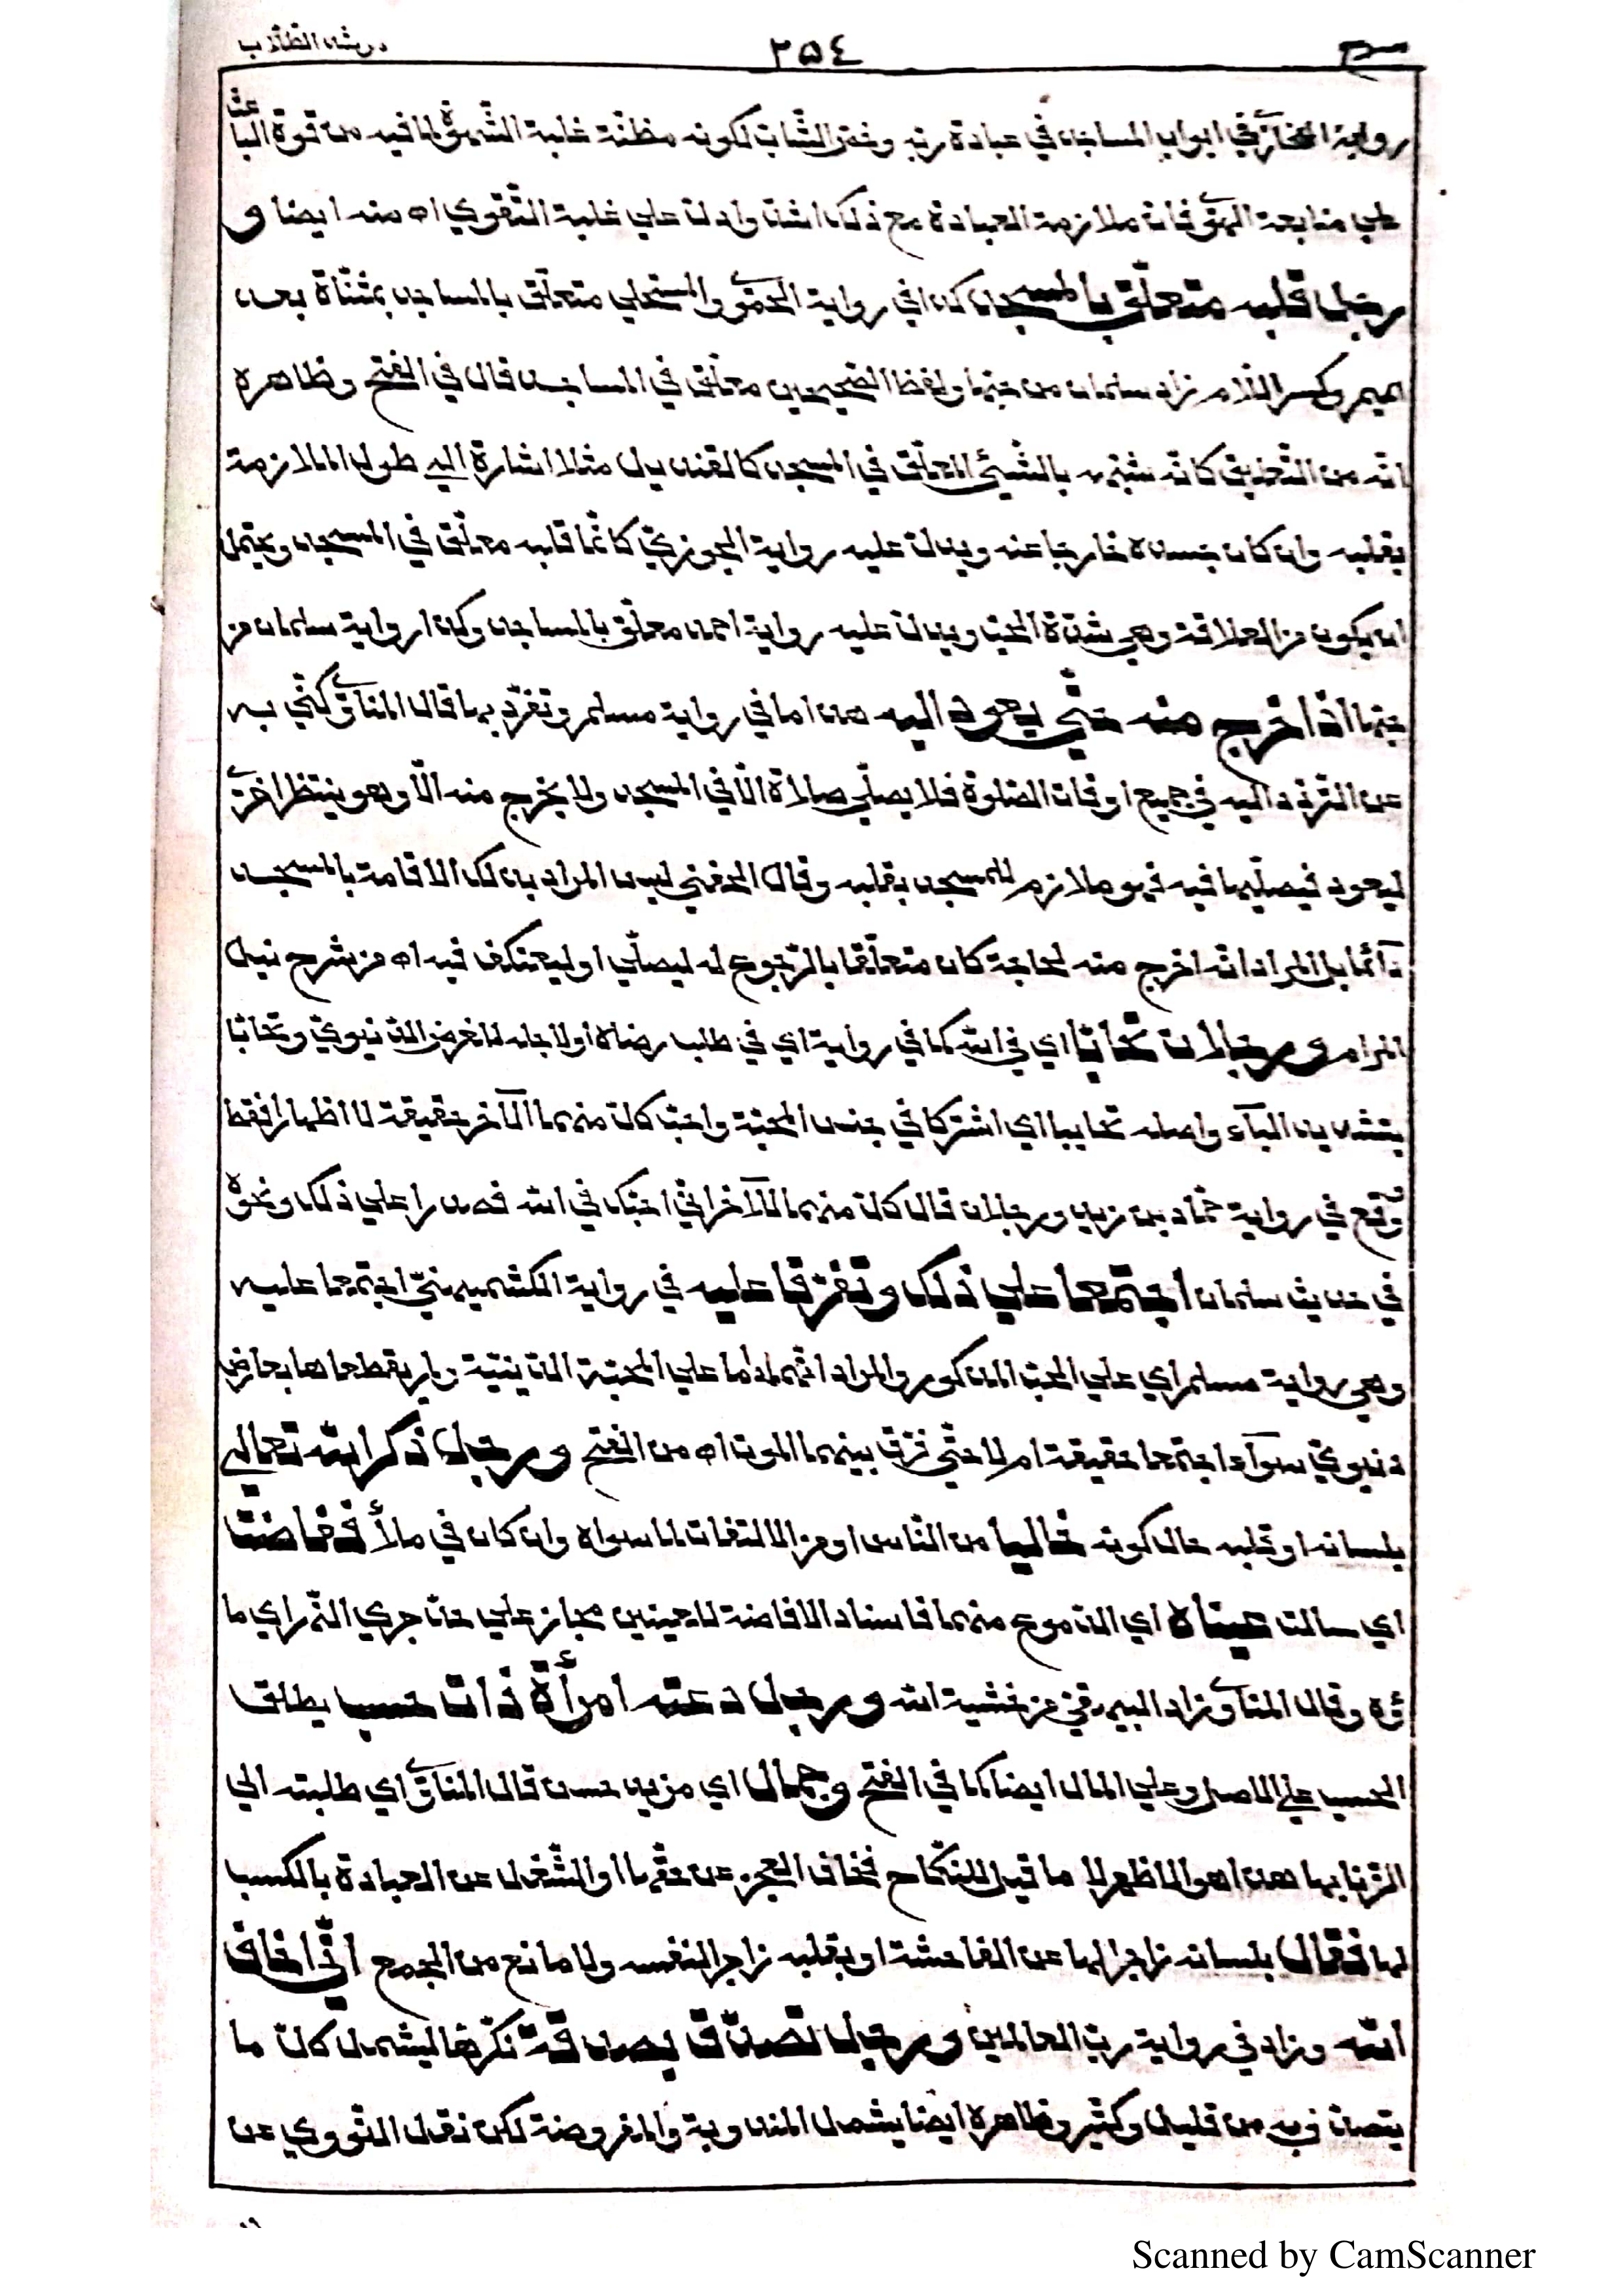 مرشد الطلاب ٢٥٤
رواية البخاري في ابواب المساجد في عبادة ربه وخص الشاب لكونه مظنة غلبة الشهوة لما فيه من قوة الباعث
على متابعة الهوى فان ملازمة العبادة مع ذلك اشد وادل علي غلبة التقوي اه منه ايضا و
رجل قلبه متعلق بالمسجد كذا في رواية الحموي والمستملي متعلق بالمساجد بمثناة بعد
الميم وكسر اللام زاد سلمان من حبها ولفظ الصحيحين معلق في المساجد قال في الفتح وظاهره
انه من التعليق كانه شبهه بالشيئ المعلق في المسجد كالقنديل مثلا اشارة الي طول الملازمة
بقلبه وان كان جسده خارجا عنه ويدل عليه رواية الجوزقي كانما قلبه معلق في المسجد ويحتمل
ان يكون من العلاقة وهي شدة الحب ويدل عليه رواية احمد معلق بالمساجد وكذا رواية سلمان من
حبها اذا خرج منه حتي يعود اليه هذا ما في رواية مسلم وتفرد بها قال المناوي كني به
عن التردد اليه في جميع اوقات الصلوة فلا يصلي صلاة الا في المسجد ولا يخرج منه الا وهو ينتظر اخري
ليعود فيصليها فيه فهو ملازم للمسجد بقلبه وقال الحفني ليس المراد بذلك الاقامة بالمسجد
دائما بل المراد انه اذا خرج منه لحاجة كان متعلقا بالرجوع له ليصلي او ليعتكف فيه اه من شرح نيل
المرام ورجلان تحابا اي في الله كما في رواية اي في طلب رضاه او لاجله لا لغرض الدنيوي وتحابا
بتشديد الباء واصله تحاببا اي اشتركا في جنس المحبة واحب كل منهما الآخر حقيقة لا اظهارا فقط
وقع في رواية حماد بن زيد ورجلان قال كل منهما للآخر اني احبك في الله فصدرا علي ذلك ونحوه
في حديث سلمان اجتمعا علي ذلك وتفرقا عليه في رواية الكشميهني اجتمعا عليه
وهي رواية مسلم اي علي الحب المذكور والمراد انهما داما علي المحبة الدينية ولم يقطعاها بعارض
دنيوي سواء اجتمعا حقيقة ام لا حتي فرق بينهما الموت اه من الفتح ورجل ذكر الله تعالي
بلسانه او قلبه حال كونه خاليا من الناس او من الالتفات لما سواه وان كان في ملأ ففاضت
اي سالت عيناه اي الدموع منهما فاسناد الافاضة للعينين مجاز علي حد جري النهر اي ما
ؤه وقال المناوي زاد البيهقي من خشية الله ورجل دعته امرأة ذات حسب يطلق
الحسب علي الاصل وعلي المال ايضا كما في الفتح وجمال اي مزيد حسن قال المناوي اي طلبته الي
الزنا بها هذا هو الاظهر لا ما قيل للنكاح فخاف العجز عن حقها او الشغل عن العبادة بالكسب
لها فقال بلسانه زاجرا لها عن الفاحشة او بقلبه زاجرا لنفسه ولا مانع من الجمع اني اخاف
الله وزاد في رواية رب العالمين ورجل تصدق بصدقة نكرها ليشمل كل ما
يتصدق به من قليل وكثير وظاهره ايضا يشمل المندوبة والمفروضة لكن نقل النووي عن
Scanned by CamScanner